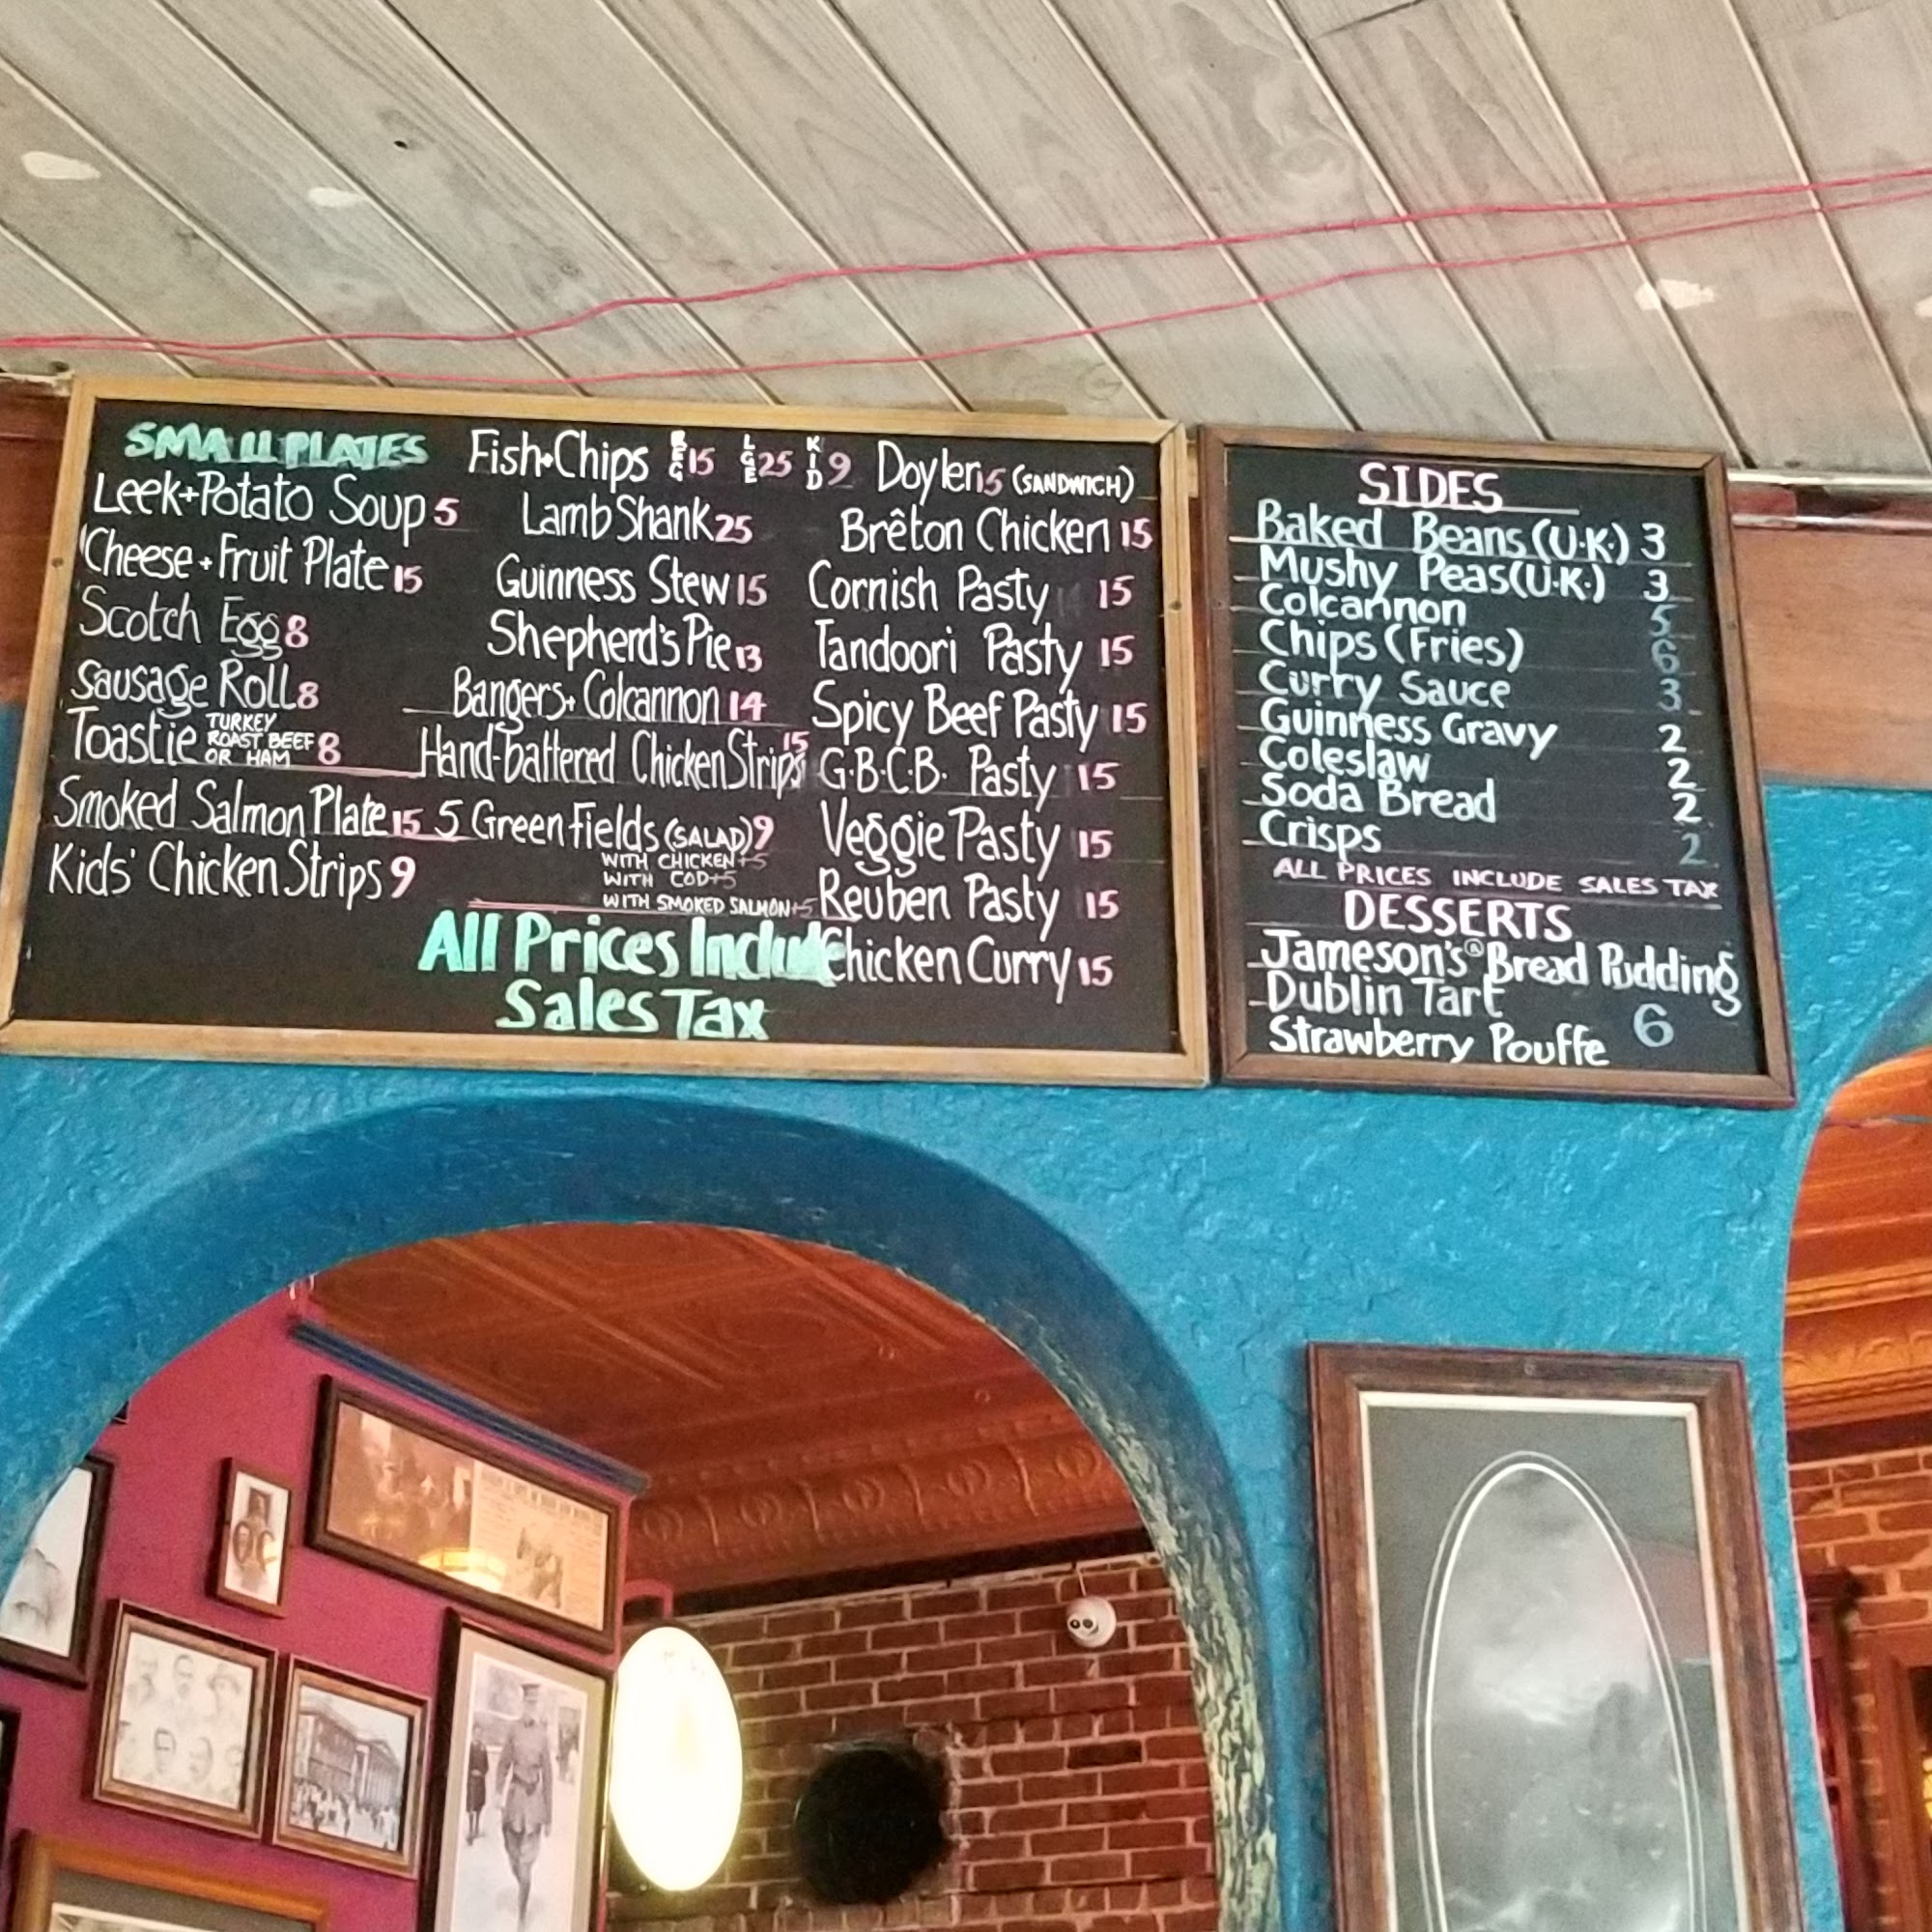 SMALL PLATES
Leek+Potato Soup 5
Cheese+Fruit Plate 15
Scotch Egg 8
Sausage Roll 8
Toastie TURKEY ROAST BEEF OR HAM 8
Smoked Salmon Plate 15
Kids' Chicken Strips 9
Fish+Chips REG 15 LGE 25 KID 9
Lamb Shank 25
Guinness Stew 15
Shepherd's Pie 13
Bangers+Colcannon 14
Hand-battered Chicken Strips 15
5 Green Fields (SALAD) 9
WITH CHICKEN +5
WITH COD +5
WITH SMOKED SALMON +5
All Prices Include
Sales Tax
Doyler 15 (SANDWICH)
Brêton Chicken 15
Cornish Pasty 15
Tandoori Pasty 15
Spicy Beef Pasty 15
G.B.C.B. Pasty 15
Veggie Pasty 15
Reuben Pasty 15
Chicken Curry 15
SIDES
Baked Beans (U.K.) 3
Mushy Peas (U.K.) 3
Colcannon 5
Chips (Fries) 6
Curry Sauce 3
Guinness Gravy 2
Coleslaw 2
Soda Bread 2
Crisps 2
ALL PRICES INCLUDE SALES TAX
DESSERTS
Jameson's® Bread Pudding
Dublin Tart
6
Strawberry Pouffe